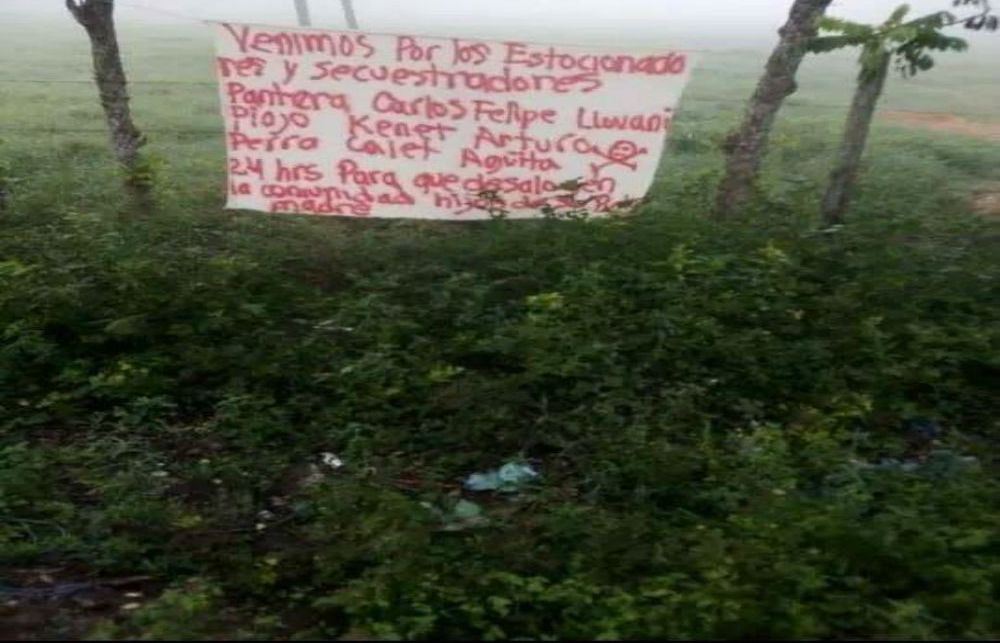 Venimos Por los Estocionado
res y secuestradores
Pantera Carlos Felipe Lluvani
Piojo Kenet Arturo
Perro Calet Aguita y
24 hrs Para que desalojen
la comunidad hijos de su
madre